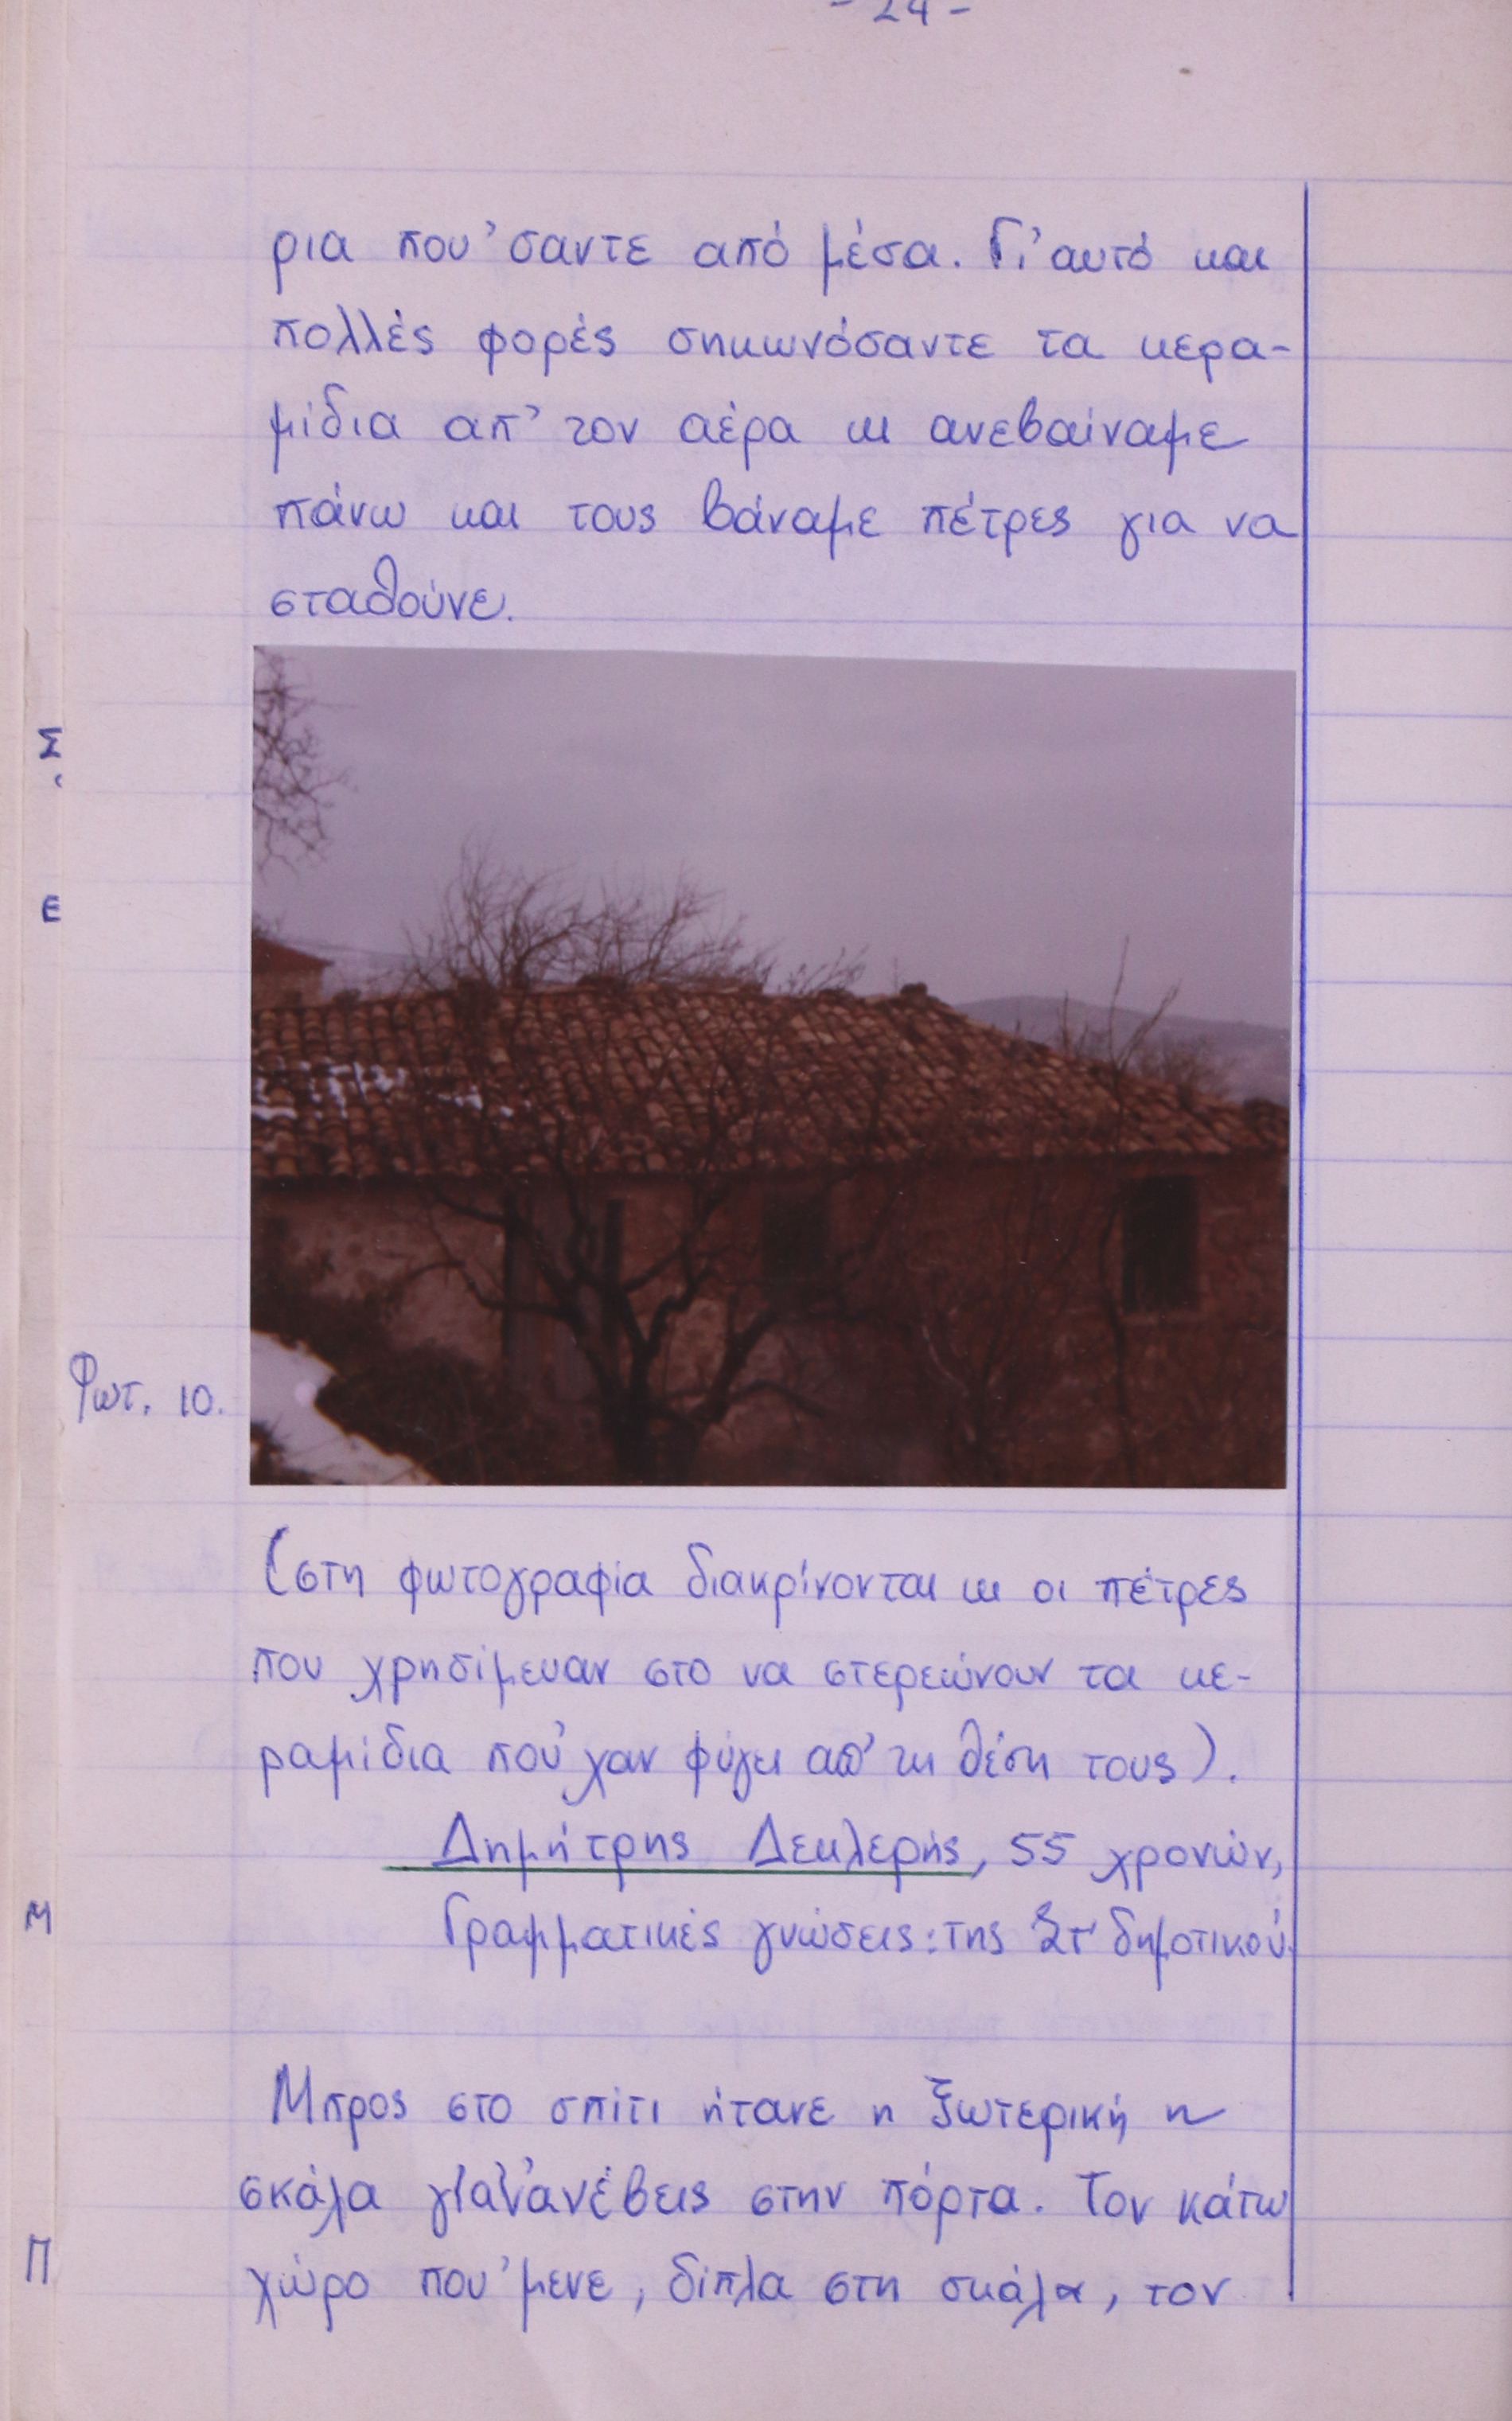 - 24 -
ρια που 'σαντε από μέσα. Γι' αυτό και
πολλές φορές σηκωνόσαντε τα κερα-
μίδια απ' τον αέρα κι ανεβαίναμε
πάνω και τους βάναμε πέτρες για να
σταθούνε.
Φωτ. 10.
(στη φωτογραφία διακρίνονται κι οι πέτρες
που χρησίμευαν στο να στερεώνουν τα κε-
ραμίδια πού 'χαν φύγει απ' τη θέση τους).
Δημήτρης Δεκλερής, 55 χρονών,
Γραμματικές γνώσεις: της Στ' δημοτικού.
Μπρος στο σπίτι ήτανε η ξωτερική η
σκάλα γιαν' ανέβεις στην πόρτα. Τον κάτω
χώρο που 'μενε, δίπλα στη σκάλα, τον
Σ
Ε
Μ
Π